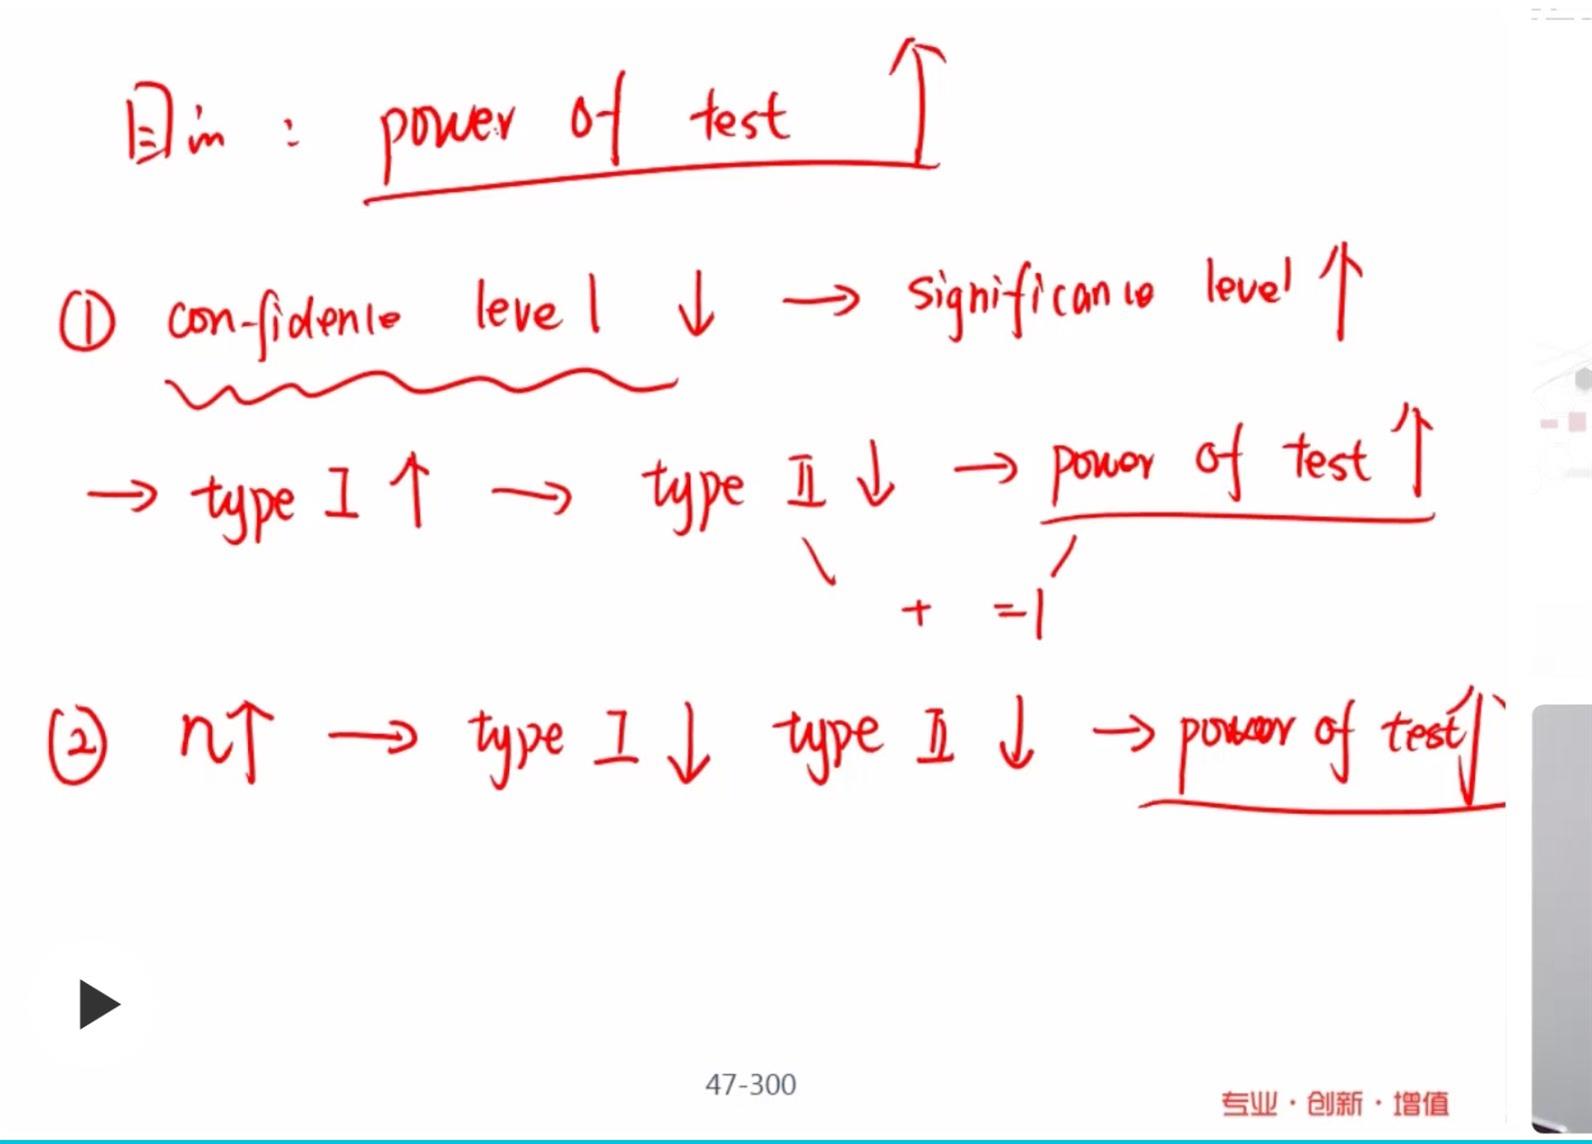 目的: power of test ↑
① confidence level ↓ → significance level ↑
→ type I ↑ → type II ↓ → power of test ↑
+ =1
② n↑ → type I ↓ type II ↓ → power of test ↑
47-300
专业·创新·增值